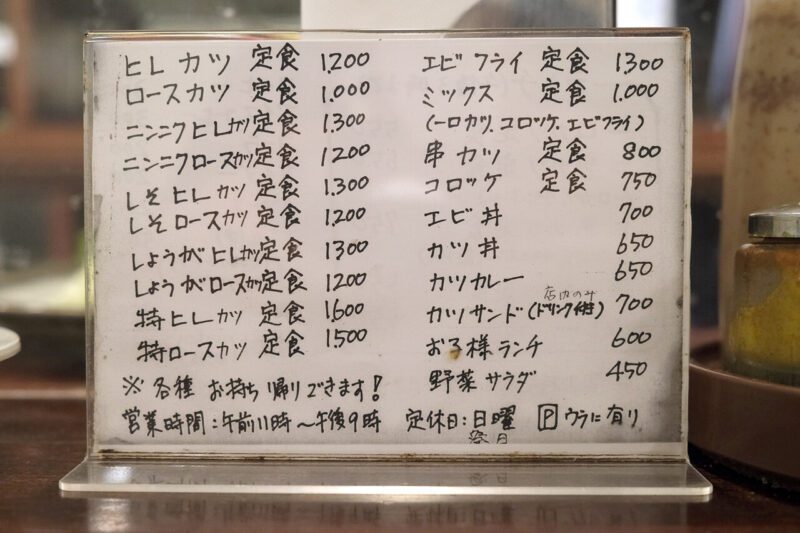 ヒレカツ 定食 1.200
ロースカツ 定食 1.000
ニンニクヒレカツ定食 1.300
ニンニクロースカツ定食 1200
しそヒレカツ定食 1.300
しそロースカツ定食 1.200
しょうがヒレカツ定食 1300
しょうがロースカツ定食 1200
特ヒレカツ 定食 1.600
特ロースカツ 定食 1.500
※各種 お持ち帰りできます!
営業時間:午前11時〜午後9時
エビフライ 定食 1.300
ミックス 定食 1.000
(一口カツ、コロッケ、エビフライ)
串カツ 定食 800
コロッケ 定食 750
エビ丼 700
カツ丼 650
カツカレー 650
店内のみ
カツサンド(ドリンク付) 700
お子様ランチ 600
野菜サラダ 450
定休日:日曜 P ウラに有り
祭日